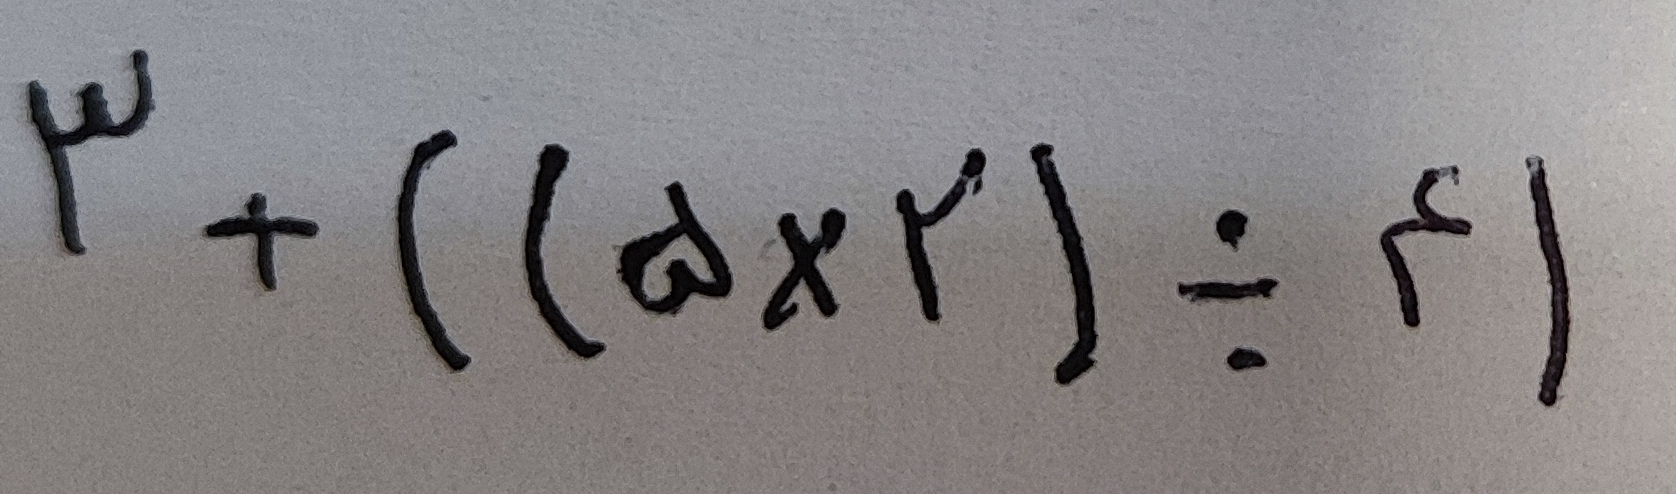 ۳ + ((۵ × ۲) ÷ ۴)